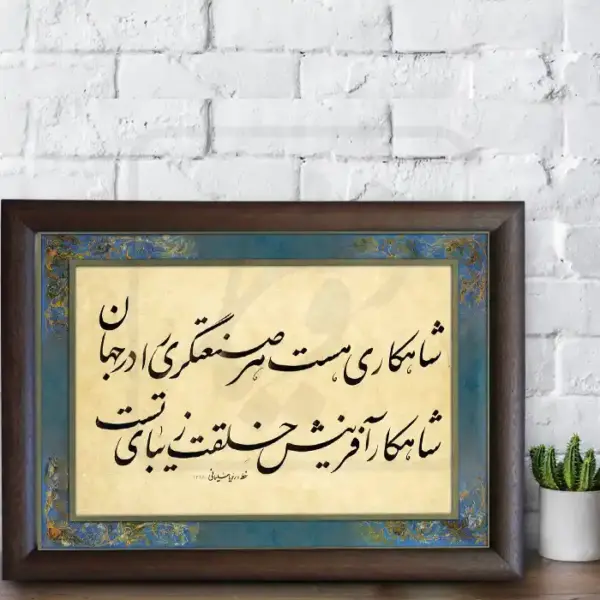 شاهکاری هست هر صنعتگری را در جهان
شاهکار آفرینش خلقت زیبای تست
خط